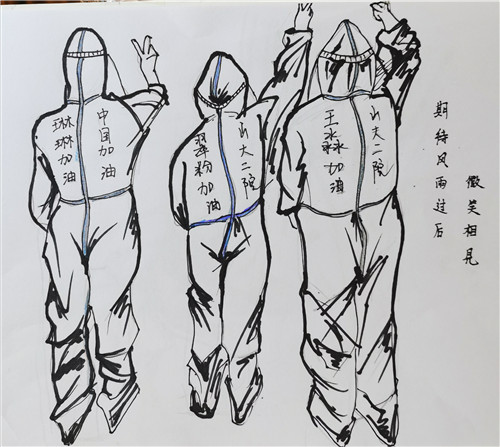 琳琳加油
中国加油
翠粉加油
山大二院
王加油
山大二院
期待风雨过后
微笑相见